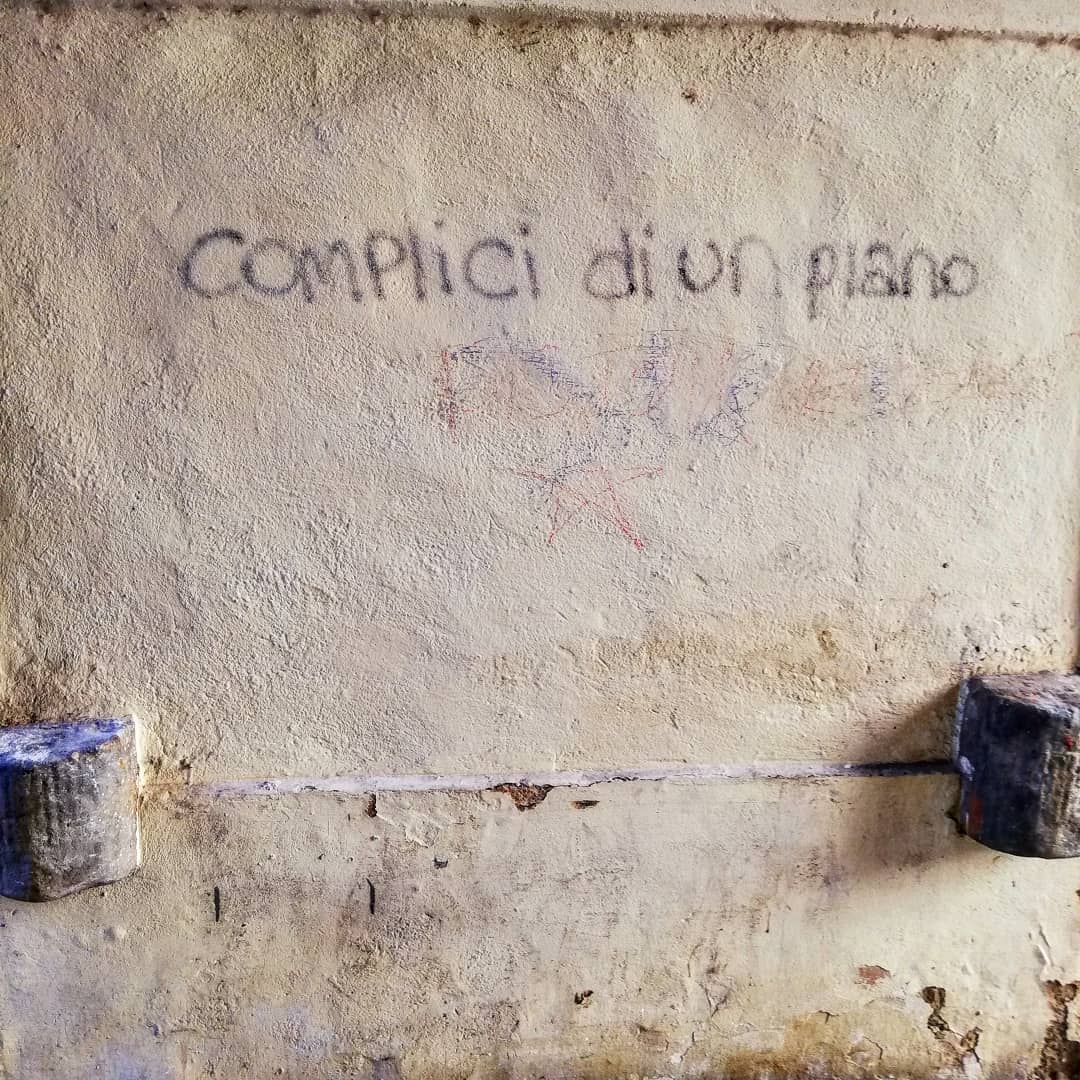 complici di un piano